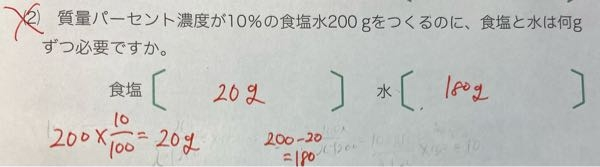 (2) 質量パーセント濃度が10%の食塩水200gをつくるのに、食塩と水は何g
ずつ必要ですか。
食塩 [ 20g ] 水 [ 180g ]
200×10/100=20g 200-20
=180